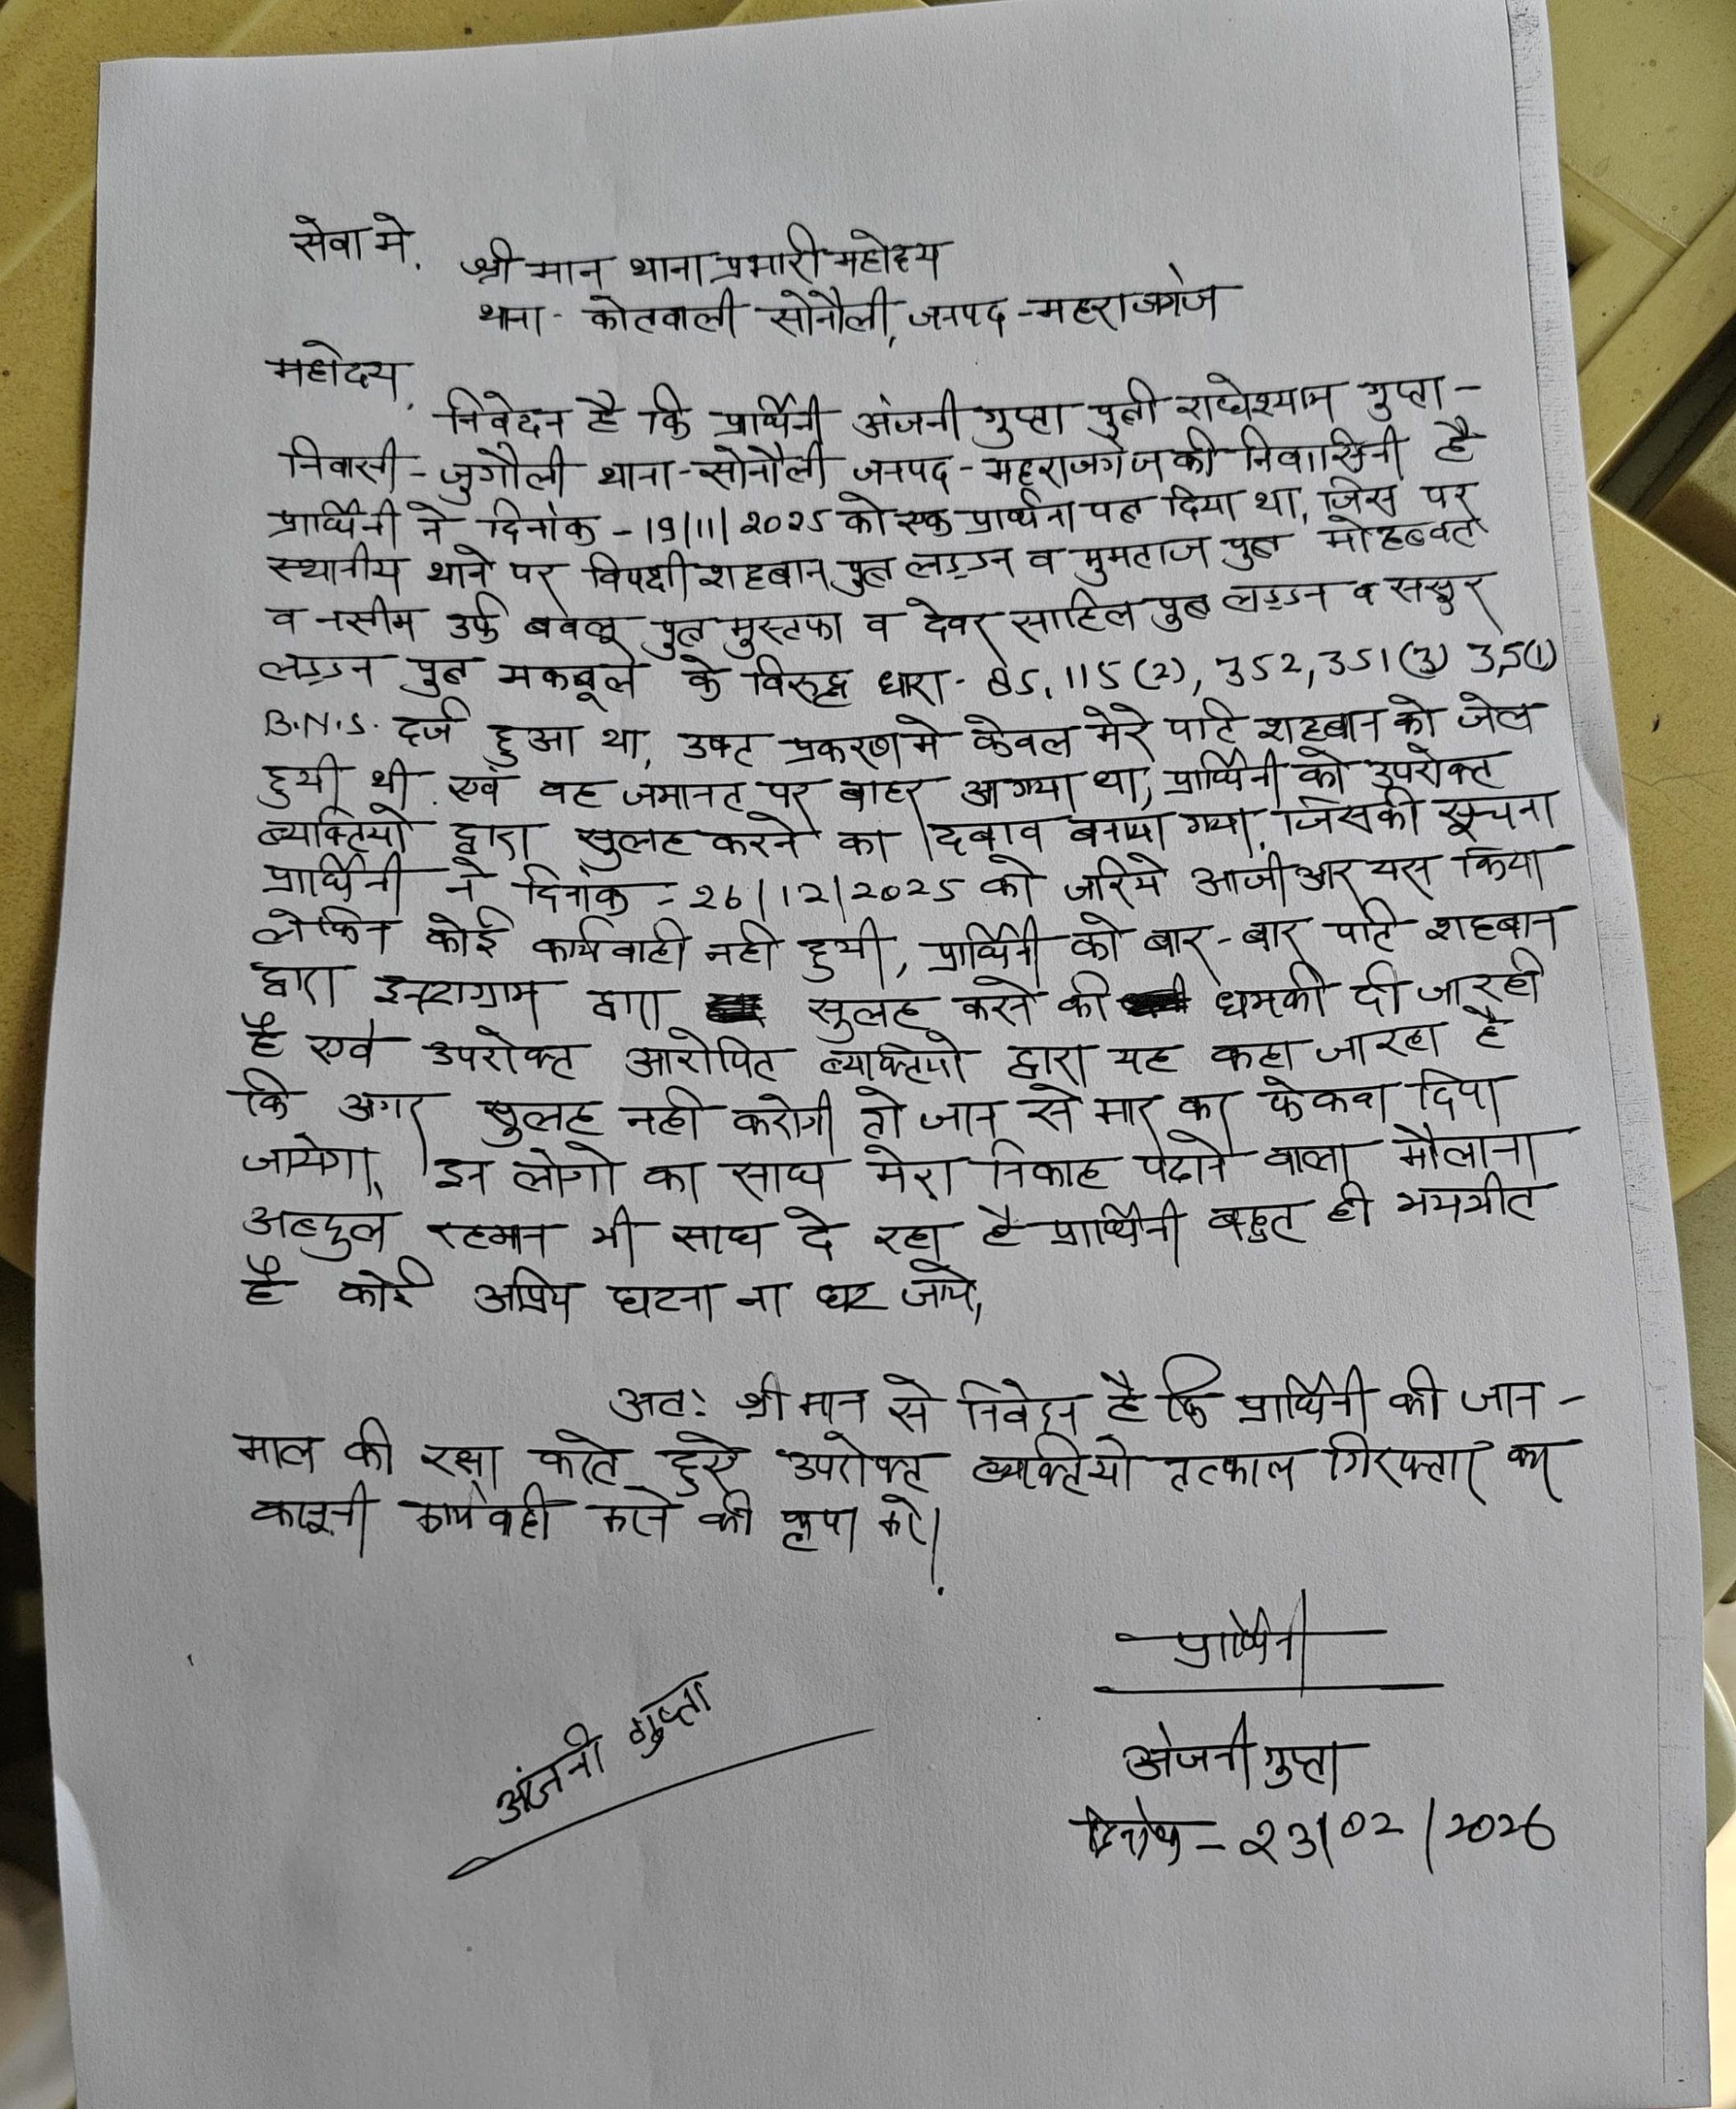 सेवा मे,
श्री मान थाना प्रभारी महोदय
थाना - कोतवाली सोनौली, जनपद - महराजगंज
महोदय,
निवेदन है कि प्रार्थिनी अंजनी गुप्ता पुत्री राधेश्याम गुप्ता -
निवासी - जुगौली थाना - सोनौली जनपद - महराजगंज की निवासिनी है
प्रार्थिनी ने दिनांक - 19/11/2025 को एक प्रार्थना पत्र दिया था, जिस पर
स्थानीय थाने पर विपक्षी शहबान पुत्र लड्डन व मुमताज पुत्र मोहब्बत
व नसीम उर्फ बबलू पुत्र मुस्तफा व देवर साहिल पुत्र लड्डन व ससुर
लड्डन पुत्र मकबूल के विरुद्ध धारा - 85, 115 (2), 352, 351 (3) 3,5(1)
B.N.S. दर्ज हुआ था, उक्त प्रकरण मे केवल मेरे पति शहबान को जेल
हुयी थी एवं वह जमानत पर बाहर आ गया था, प्रार्थिनी को उपरोक्त
व्यक्तियो द्वारा सुलह करने का दबाव बनाया गया, जिसकी सूचना
प्रार्थिनी ने दिनांक = 26/12/2025 को जरिये आजीआर यस किया
लेकिन कोई कार्यवाही नही हुयी, प्रार्थिनी को बार - बार पति शहबान
द्वारा इन्स्टाग्राम द्वारा सुलह करने की धमकी दी जा रही
है एवं उपरोक्त आरोपित व्यक्तियो द्वारा यह कहा जा रहा है
कि अगर सुलह नही करोगी तो जान से मार कर फेकवा दिया
जायेगा, इन लोगो का साथ मेरा निकाह पढाने वाला मौलाना
अब्दुल रहमान भी साथ दे रहा है प्रार्थिनी बहुत ही भयभीत
है कोई अप्रिय घटना ना घट जाये,
अतः श्री मान से निवेदन है कि प्रार्थिनी की जान -
माल की रक्षा करते हुये उपरोक्त व्यक्तियो तत्काल गिरफ्तार कर
कानूनी कार्यवाही करने की कृपा करे।
प्रार्थिनी
अंजनी गुप्ता
अंजनी गुप्ता
दिनांक - 23/02/2026